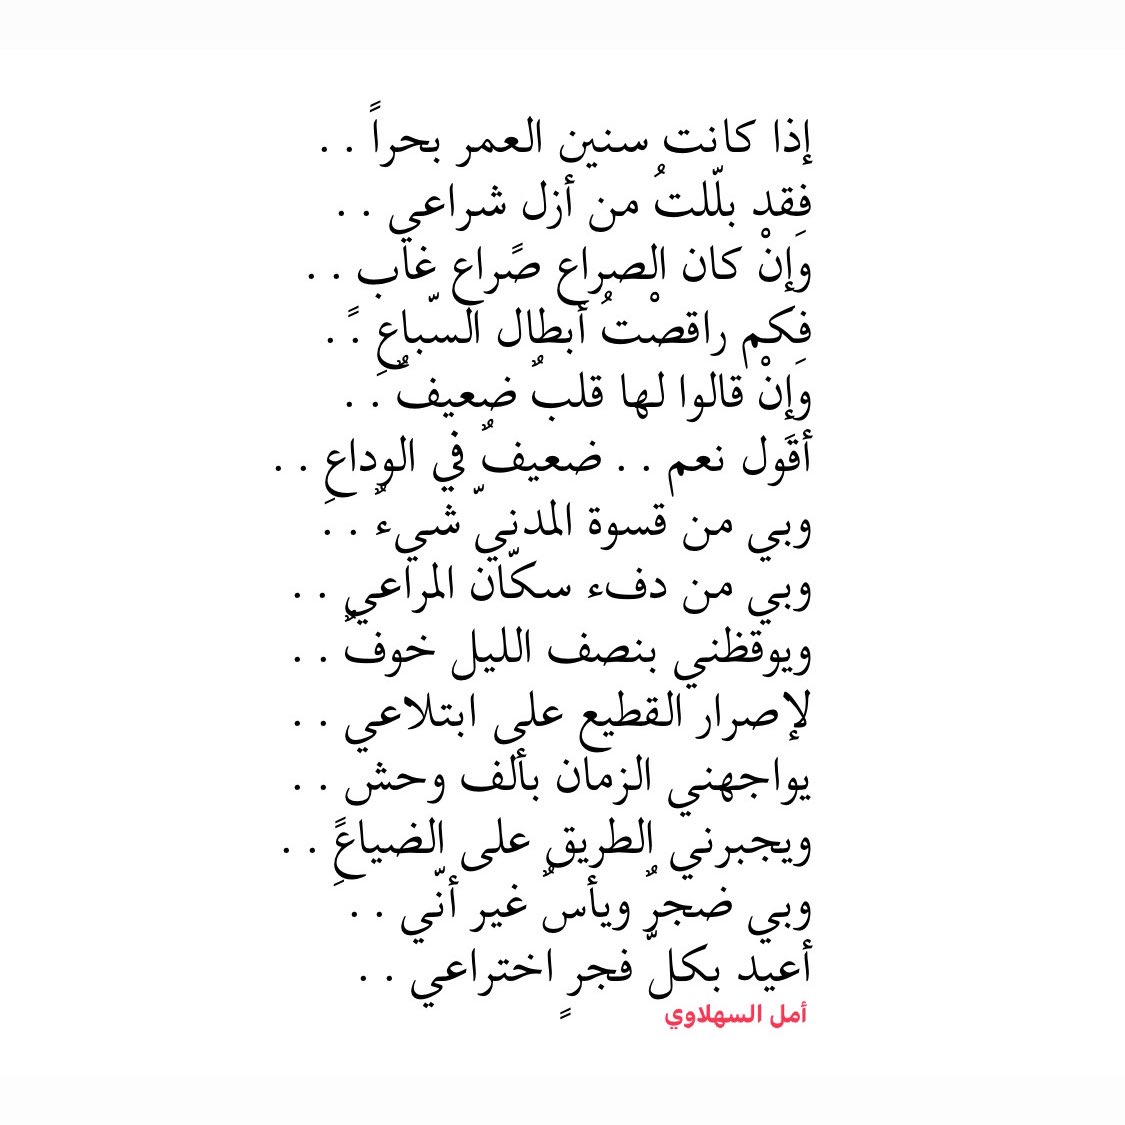 إذا كانت سنين العمر بحراً . .
فقد بلّلتُ من أزل شراعي . .
وَإنْ كان الصراع صراع غابٍ . .
فكم راقصْتُ أبطال السّباعِ . .
وَإنْ قالوا لها قلبٌ ضعيفٌ . .
أقول نعم . . ضعيفٌ في الوداعِ . .
وبي من قسوة المدنيّ شيءٌ . .
وبي من دفء سكّان المراعي . .
ويوقظني بنصف الليل خوفٌ . .
لإصرار القطيع على ابتلاعي . .
يواجهني الزمان بألف وحشٍ . .
ويجبرني الطريق على الضياعِ . .
وبي ضجرٌ ويأسٌ غير أنّي . .
أعيد بكلّ فجرٍ اختراعي . .
أمل السهلاوي